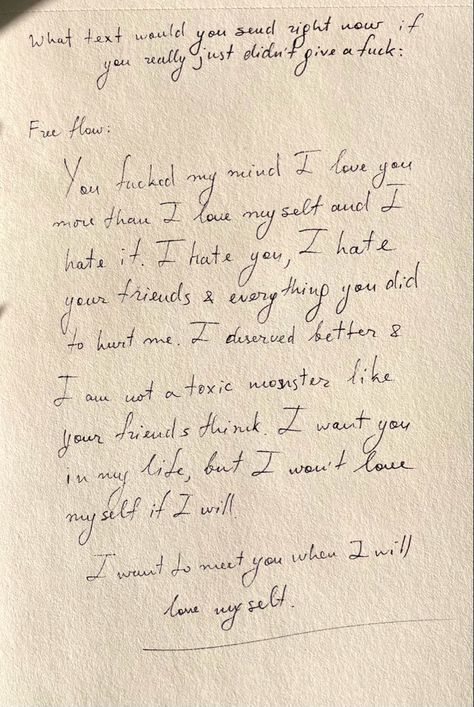 What text would you send right now if
you really just didn't give a fuck:
Free flow:
You fucked my mind I love you
more than I love myself and I
hate it. I hate you, I hate
your friends & everything you did
to hurt me. I deserved better &
I am not a toxic monster like
your friends think. I want you
in my life, but I won't love
myself if I will.
I want to meet you when I will
love myself.